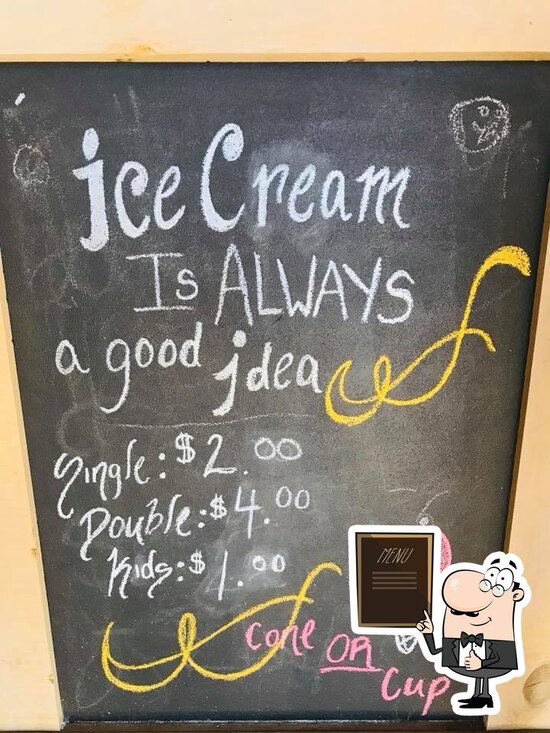 ice Cream
Is ALWAYS
a good idea
Single: $2.00
Double: $4.00
Kids: $1.00
MENU
cone OR
cup